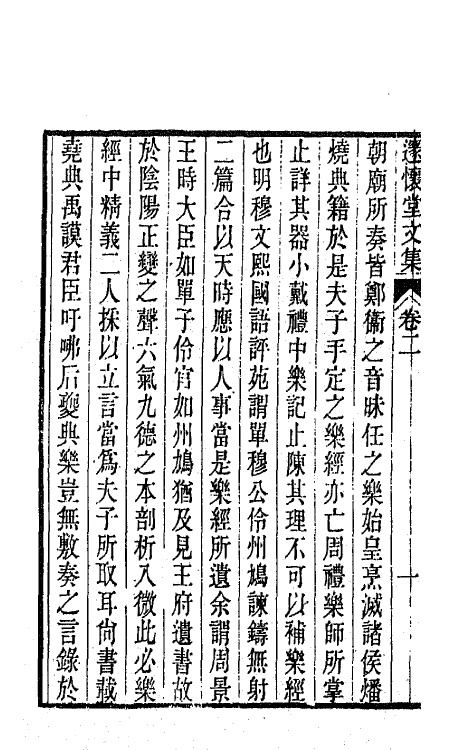 邃懷堂文集 卷二 一
朝廟所奏皆鄭衞之音昧任之樂始呈烹滅諸侯燔
燒典籍於是夫子手定之樂經亦亡周禮樂師所掌
止詳其器小戴禮中樂記止陳其理不可以補樂經
也明穆文熙國語評苑謂單穆公伶州鳩諫鑄無射
二篇合以天時應以人事當是樂經所遺余謂周景
王時大臣如單子伶官如州鳩猶及見王府遺書故
於陰陽正變之聲六氣九德之本剖析入微此必樂
經中精義二人採以立言當爲夫子所取耳尙書載
堯典禹謨君臣吁咈后夔典樂豈無敷奏之言錄於